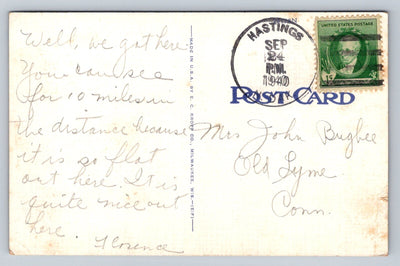 Well, we got here.
You can see
for 10 miles in
the distance because
it is so flat
out here. It is
quite nice out
here.
Florence
MADE IN U.S.A. BY E. C. KROPP CO., MILWAUKEE, WIS.
HASTINGS
SEP
24
P.M.
1940
UNITED STATES POSTAGE
1¢
POST CARD
Mrs John Bugbee
Old Lyme
Conn.